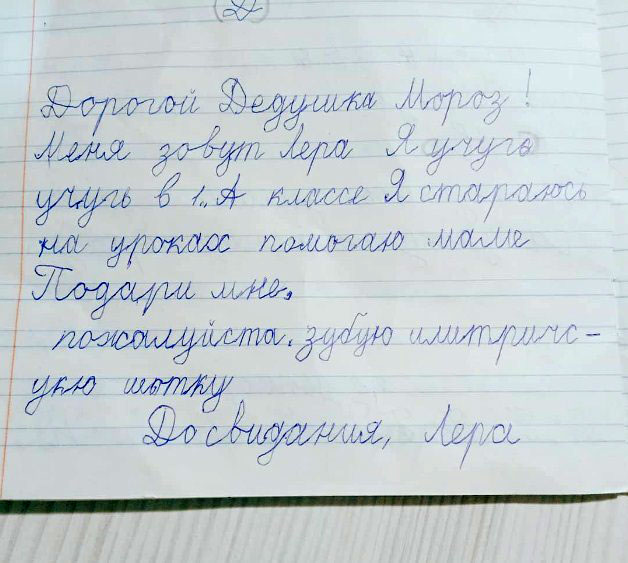 Д
Дорогой Дедушка Мороз!
Меня зовут Лера Я учуь
учуь в 1„А классе Я стараюсь
на уроках помогаю маме
Подари мне,
пожалуйста. зубую илитричс-
укю шотку
До свидания, Лера